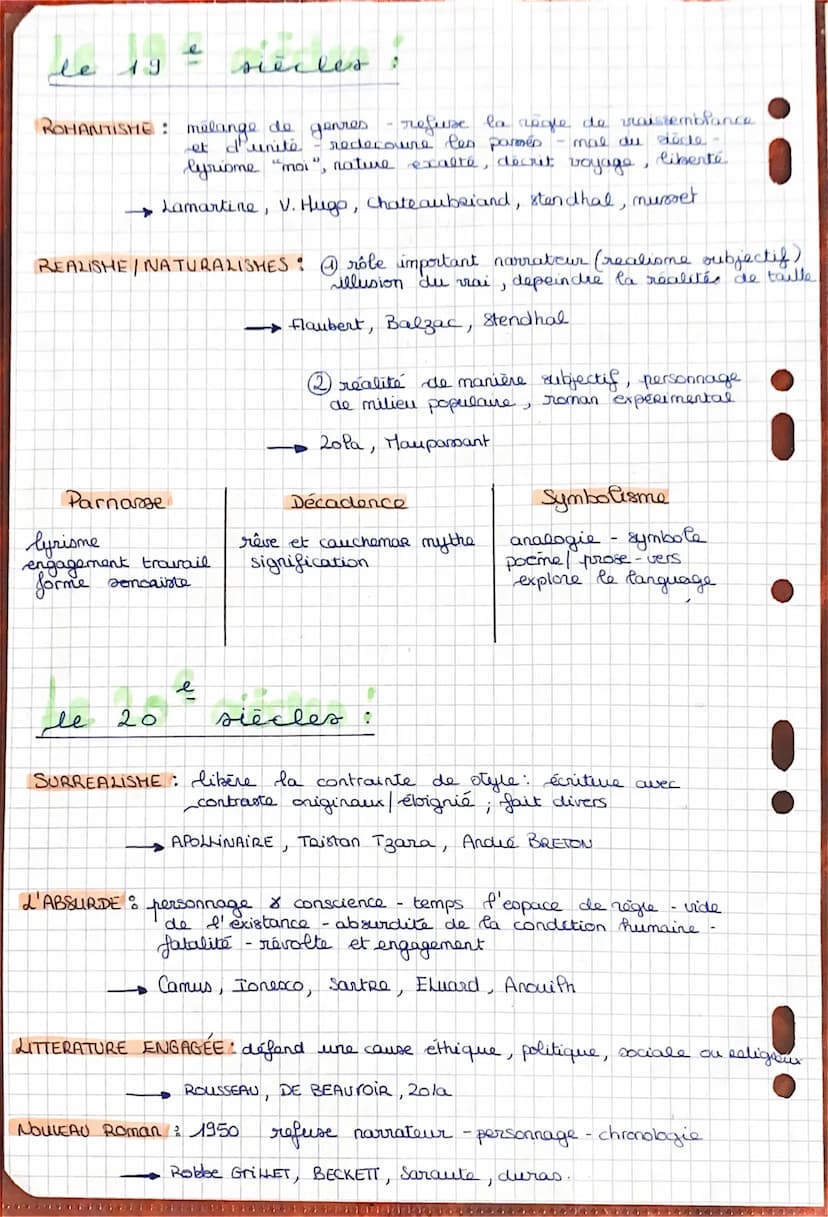 le 19e siècles :
ROMANTISME : mélange de genres - refuse la règle de vraissemblance
et d'unité - redecouvre les passés - mal du siècle -
lyrisme "moi", nature exalté, décrit voyage, liberté
→ Lamartine, V. Hugo, Chateaubriand, stendhal, musset
REALISME / NATURALISMES : ① rôle important narrateur (realisme subjectif)
illusion du vrai, depeindre la réalités de taille
→ Flaubert, Balzac, Stendhal
② réalité de manière subjectif, personnage
de milieu populaire, roman expérimental
→ Zola, Maupassant
Parnasse
lyrisme
engagement travail
forme
Décadence
rêve et cauchemar mythe
signification
Symbolisme
analogie - symbole
poème / prose - vers
explore le language
le 20e siècles :
SURREALISME : libère la contrainte de style : écriture avec
contraste originaux / éloignié ; fait divers
→ APOLLINAIRE, Tristan Tzara, André BRETON
L'ABSURDE : personnage conscience - temps l'espace de règle - vide
de l'existance - absurdité de la condition humaine -
fatalité - révolte et engagement
→ Camus, Ionesco, Sartre, Eluard, Anouilh
LITTERATURE ENGAGÉE : défend une cause éthique, politique, sociale ou religieux
→ ROUSSEAU, DE BEAUVOIR, Zola
NOUVEAU Roman : 1950 refuse narrateur - personnage - chronologie
→ Robbe GRILLET, BECKETT, Saraute, duras.